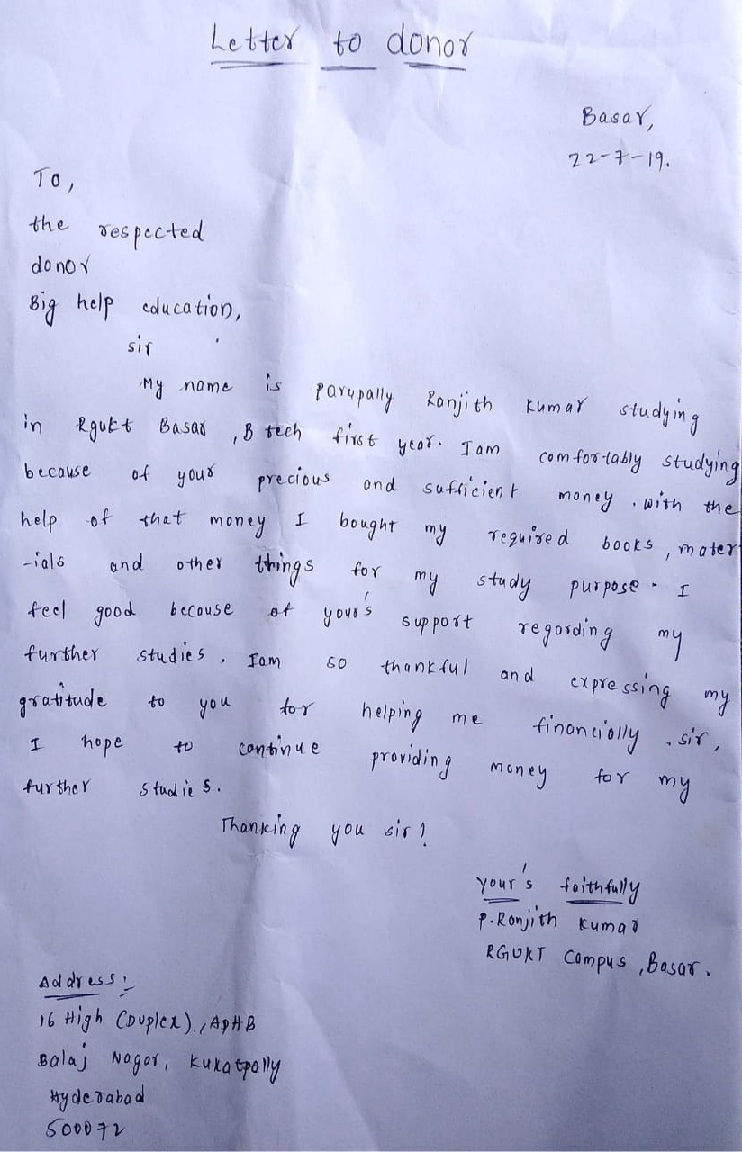 Letter to donor
Basar,
22-7-19.
To,
the respected
donor
Big help education,
sir
My name is parupally Ranjith kumar studying
in Rgukt Basar , B tech first year. Iam comfortably studying
because of your precious and sufficient money . with the
help of that money I bought my required books , mater
-ials and other things for my study purpose. I
feel good because of your's support regarding my
further studies . Iam so thankful and expressing my
gratitude to you for helping me financially . sir,
I hope to continue providing money for my
further studies.
Thanking you sir!
your's faithfully
P. Ranjith kumar
RGUKT Campus , Basar.
Address:
16 High (Duplex) , APHB
Balaj Nagar, kukatpally
Hyderabad
500072